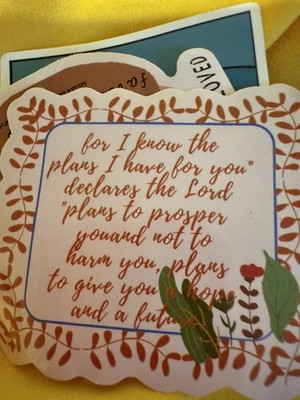 OVED
for I know the
plans I have for you"
declares the Lord
"plans to prosper
youand not to
harm you, plans
to give you a hope
and a future